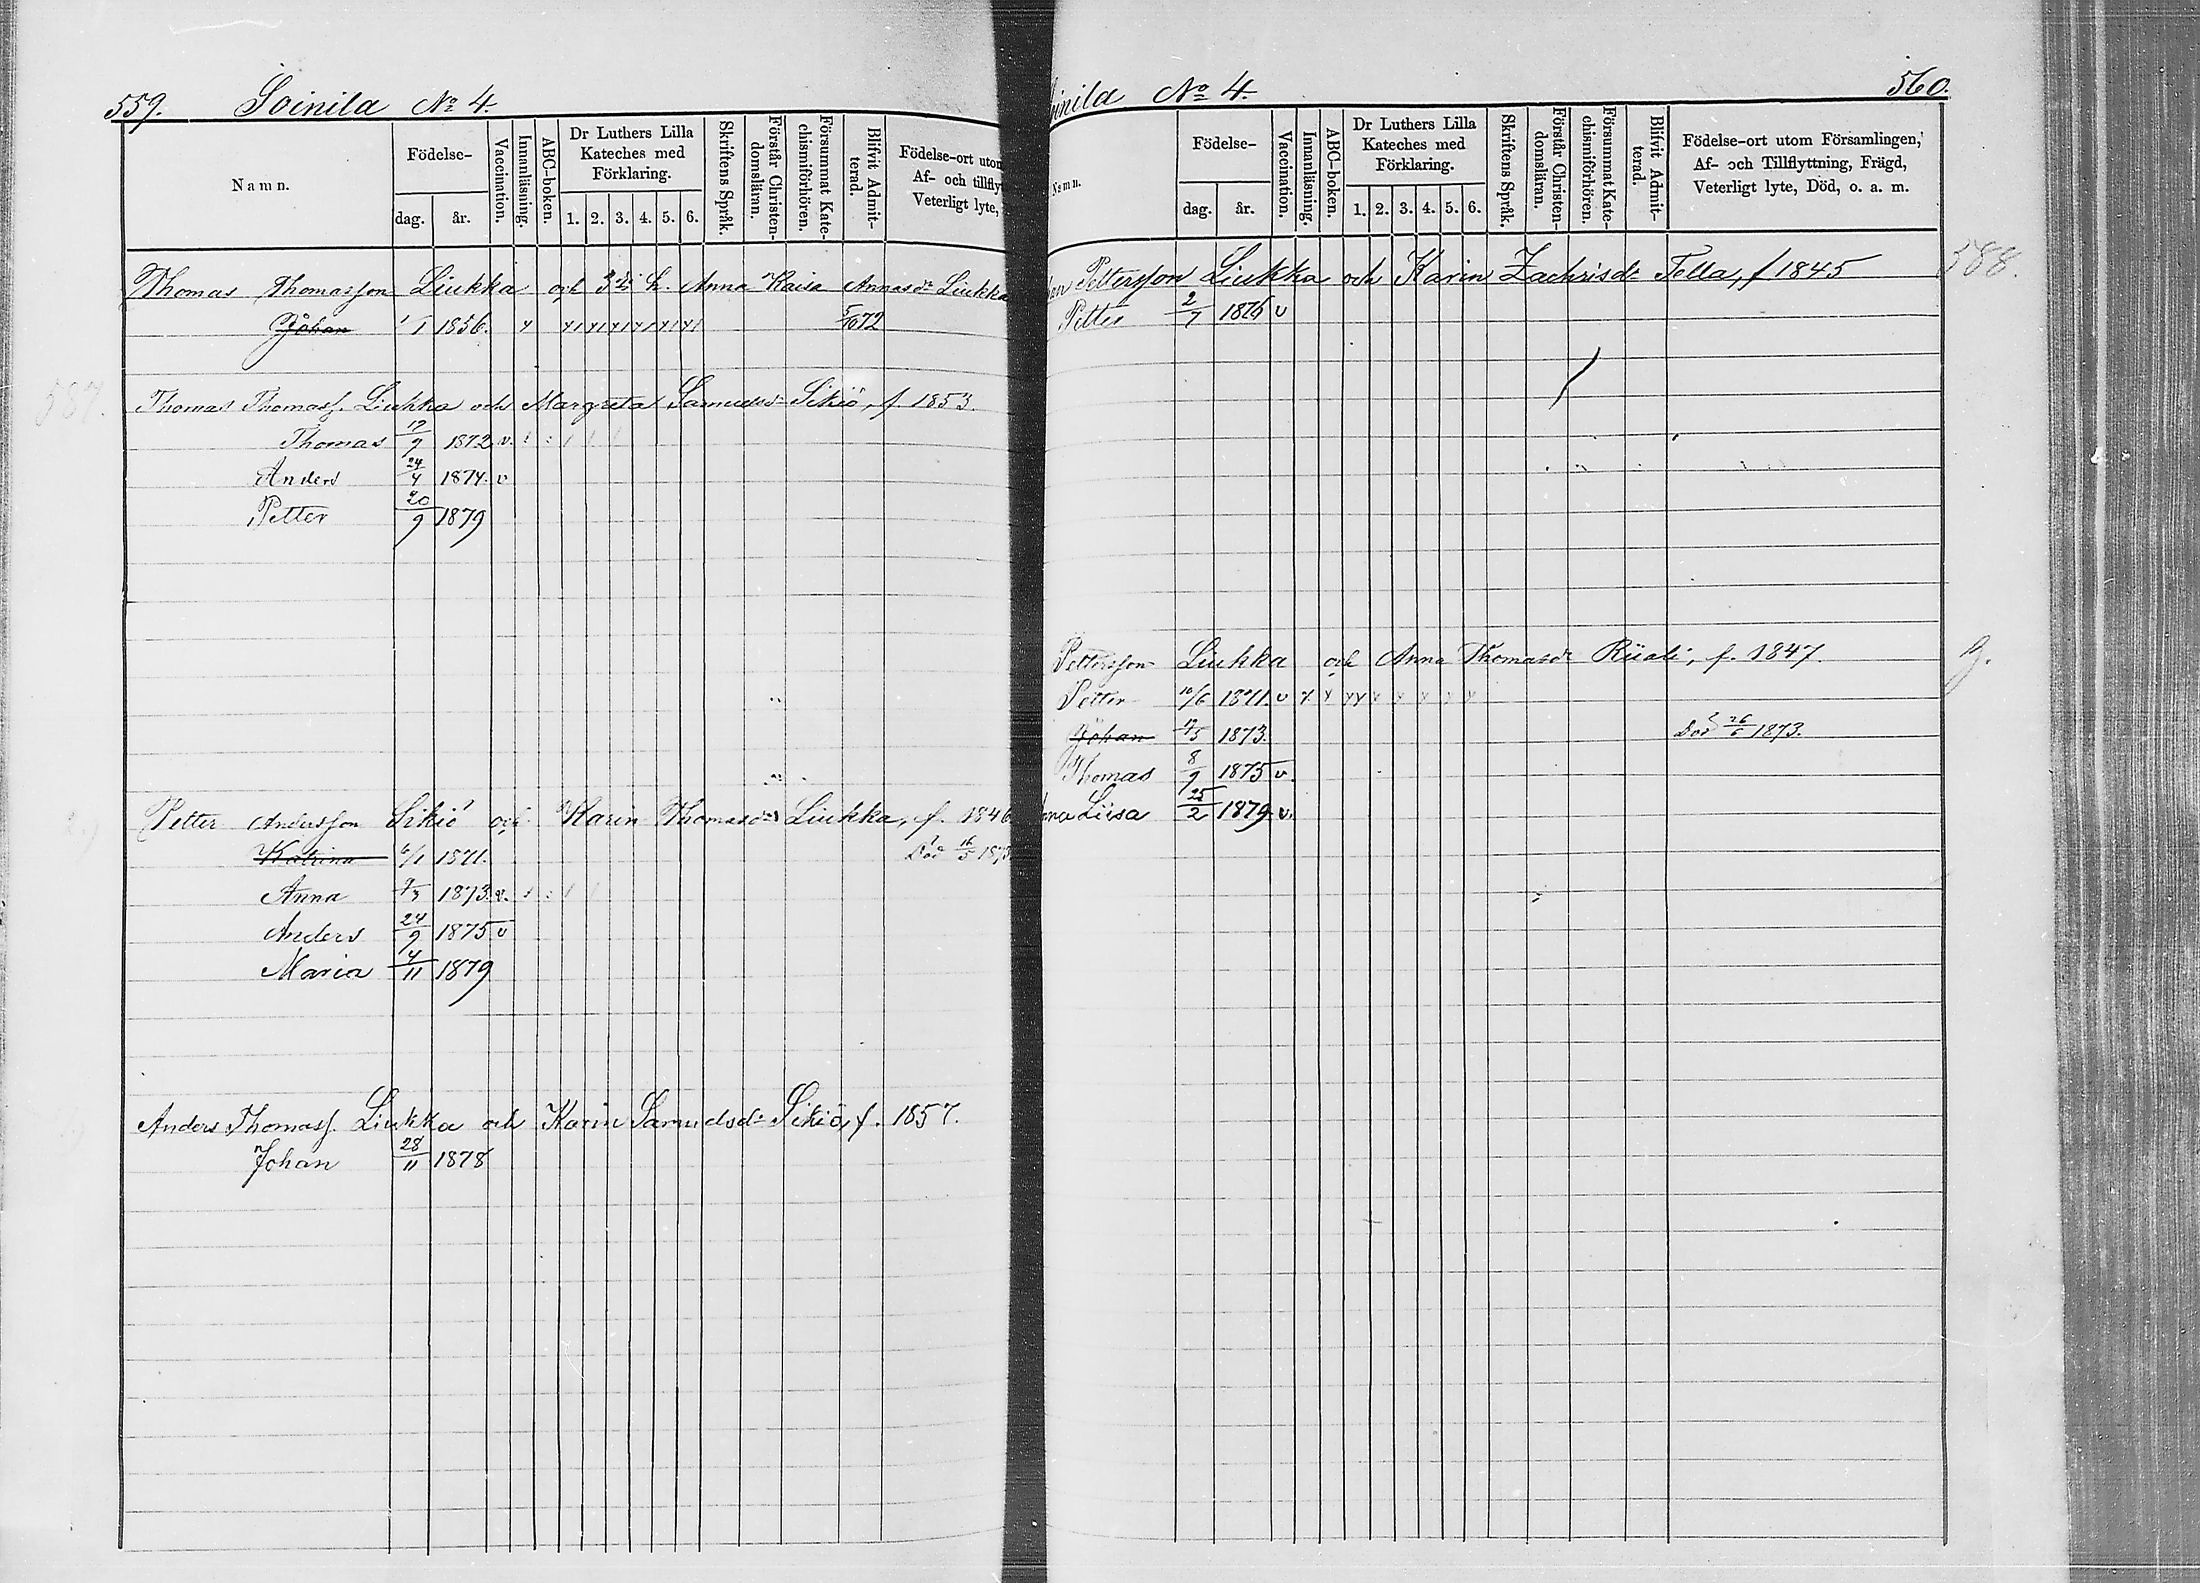 559. Soinila No 4.
Namn.
Födelse-
dag.
år.
Vaccination.
Innanläsning.
ABC-boken.
Dr Luthers Lilla
Kateches med
Förklaring.
1. 2. 3. 4. 5. 6.
Skriftens Språk.
Förstår Christen-
domsläran.
Försummat Kate-
chismiförhören.
Blifvit Admit-
terad.
Födelse-ort utom
Af- och tillfly
Veterligt lyte,
Thomas Thomasson Liukka och 3die h. Anna Kaisa Annasdr Liukka
Johan 1/1 1856. 72
587.
Thomas Thomass. Liukka och Margreta Samuelsdr Sikiö, f. 1853.
Thomas 17/9 1872 v.
Anders 24/4 1874. v
Petter 20/9 1879
Petter Andersson Sikiö och Karin Thomasdr Liukka, f. 1846
Katrina 6/1 1871. Död 16/5 187
Anna 7/3 1873. v.
Anders 24/9 1875 v
Maria 14/11 1879
Anders Thomass. Liukka och Karin Samuelsdr Sikiö, f. 1857.
Johan 28/11 1878
inila No 4. 560.
Namn.
Födelse-
dag.
år.
Vaccination.
Innanläsning.
ABC-boken.
Dr Luthers Lilla
Kateches med
Förklaring.
1. 2. 3. 4. 5. 6.
Skriftens Språk.
Förstår Christen-
domsläran.
Försummat Kate-
chismiförhören.
Blifvit Admit-
terad.
Födelse-ort utom Församlingen,
Af- och Tillflyttning, Frägd,
Veterligt lyte, Död, o. a. m.
an Pettersson Liukka och Karin Zachrisdr Tella, f 1845 588.
Petter 2/7 1876 v
Pettersson Liukka och Anna Thomasdr Riiali, f. 1847.
Petter 10/6 1871. v
Johan 17/5 1873. Död 26/6 1873.
Thomas 8/9 1875 v.
nna Liisa 25/2 1879. v.